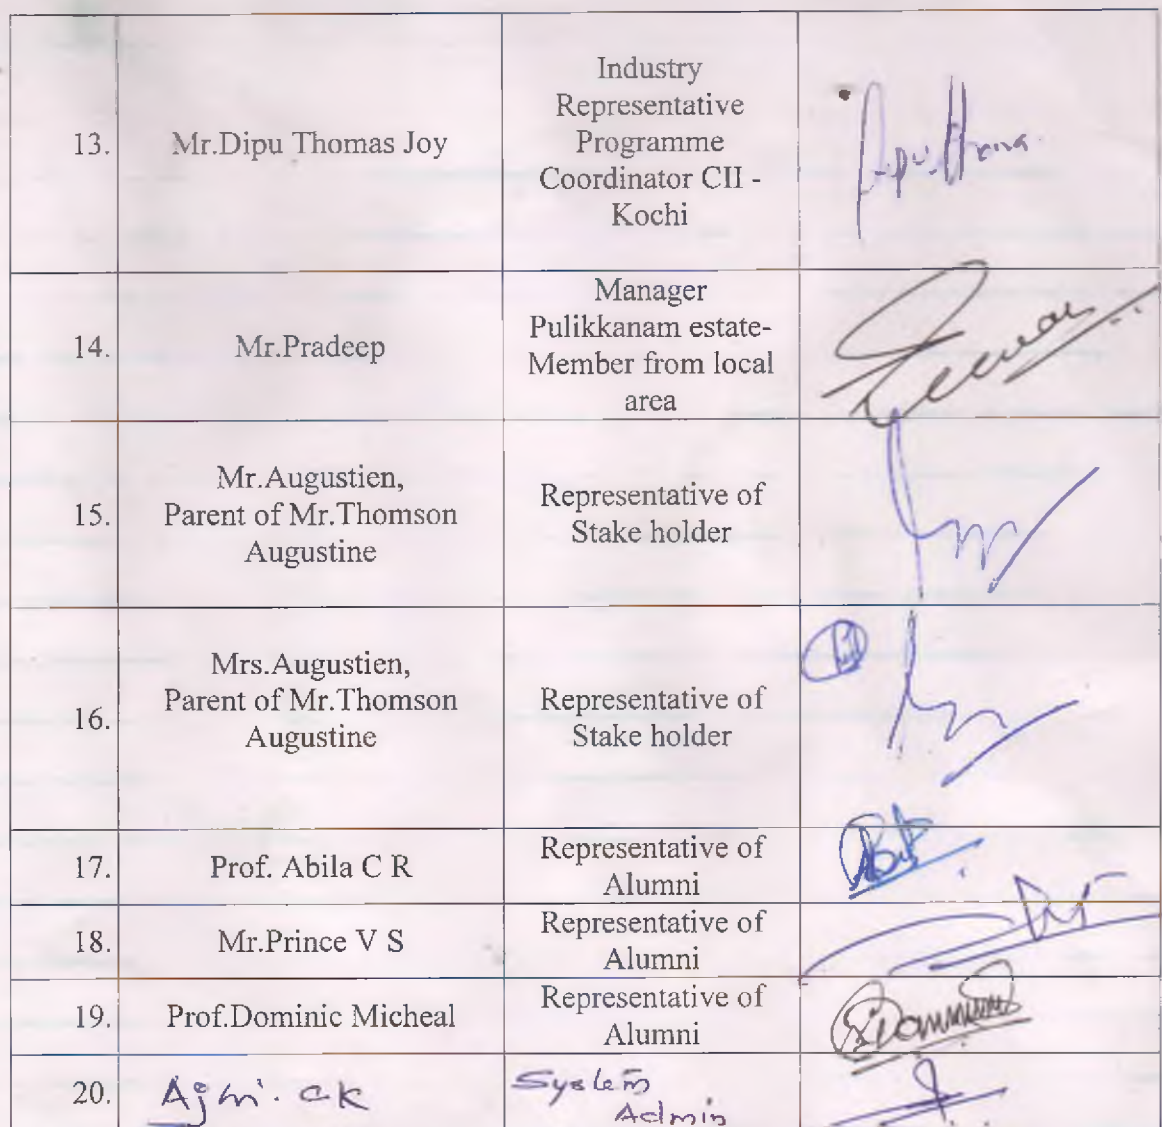 13.
Mr.Dipu Thomas Joy
Industry
Representative
Programme
Coordinator CII -
Kochi
14.
Mr.Pradeep
Manager
Pulikkanam estate-
Member from local
area
15.
Mr.Augustien,
Parent of Mr.Thomson
Augustine
Representative of
Stake holder
16.
Mrs.Augustien,
Parent of Mr.Thomson
Augustine
Representative of
Stake holder
17.
Prof. Abila C R
Representative of
Alumni
18.
Mr.Prince V S
Representative of
Alumni
19.
Prof.Dominic Micheal
Representative of
Alumni
20.
System
Admin